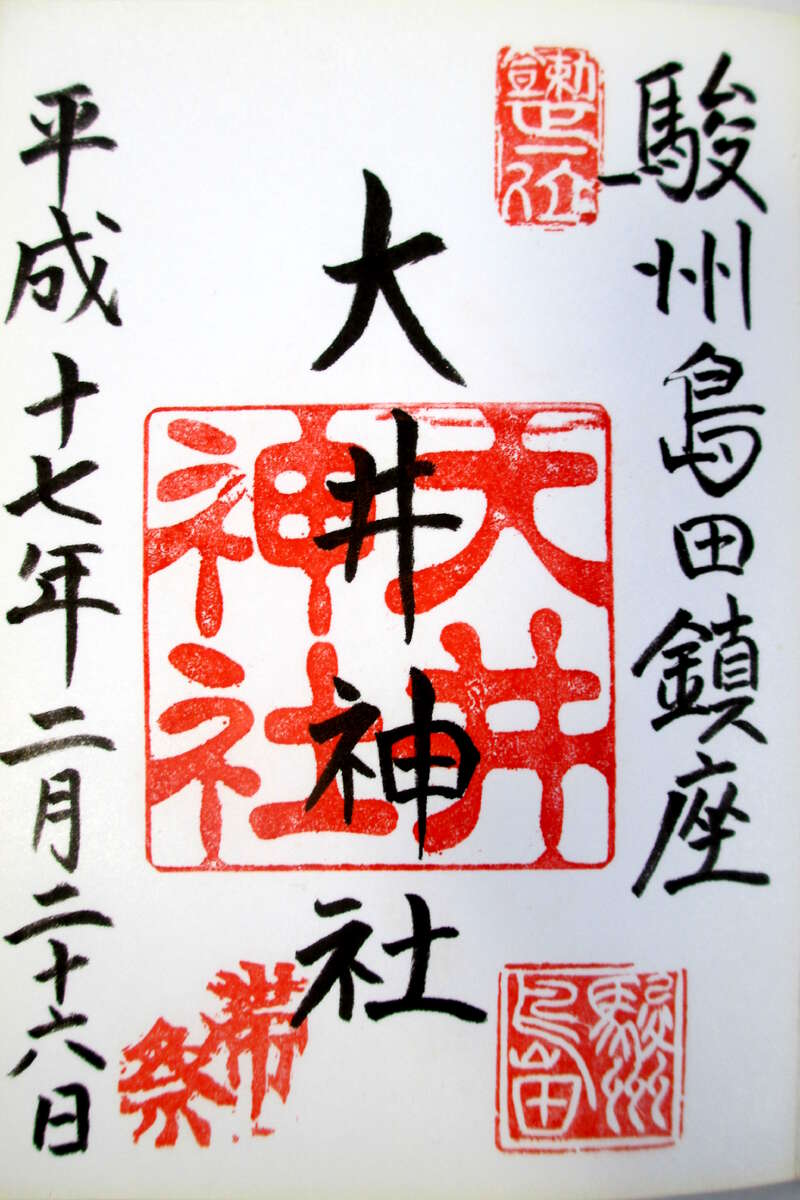 駿州島田鎮座
勅宣正一位
大井神社
大井
神社
駿州
島田
帯
祭
平成十七年二月二十六日